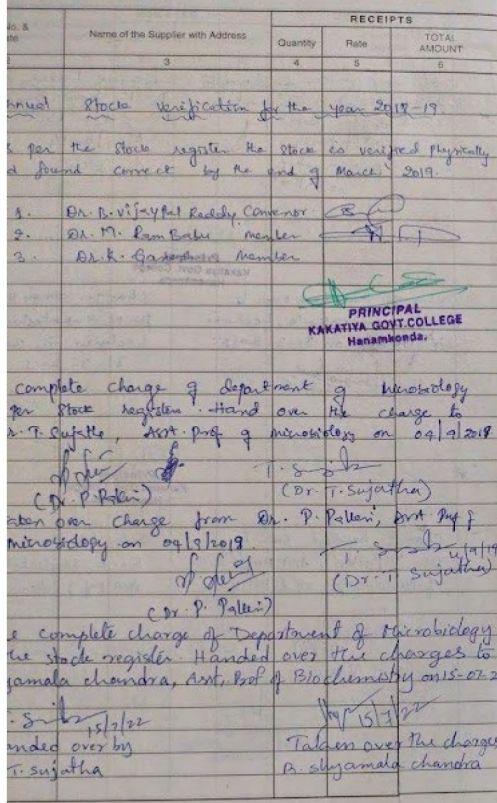 No. &
Name of the Supplier with Address
RECEIPTS
Quantity
Rate
TOTAL AMOUNT
3
4
5
6
nnual Stock Verification for the year 2018-19
per the Stock register the stock is verified Physically
d found correct by the end of March 2019.
1. Dr. B. Vijaypal Reddy Convenor
2. Dr. M. Ram Babu member
3. Dr. K. member
PRINCIPAL
KAKATIYA GOVT.COLLEGE
Hanamkonda.
complete charge of department of microbiology
per Stock register. Hand over the charge to
r. T. Sujatha, Asst. Prof of microbiology on 04/9/2019
(Dr. P. Pallavi)
(Dr. T. Sujatha)
aken over charge from Dr. P. Pallavi, Asst Prof of
microbiology on 04/9/2019.
4/9/19
(Dr. T Sujatha)
(Dr. P. Pallavi)
e complete charge of Department of Microbiology
he stock register. Handed over the charges to
yamala chandra, Asst, Prof of Biochemistry on 15-07-2
15/7/22
15/7/22
anded over by
Taken over the charges
T. sujatha
B. shyamala chandra